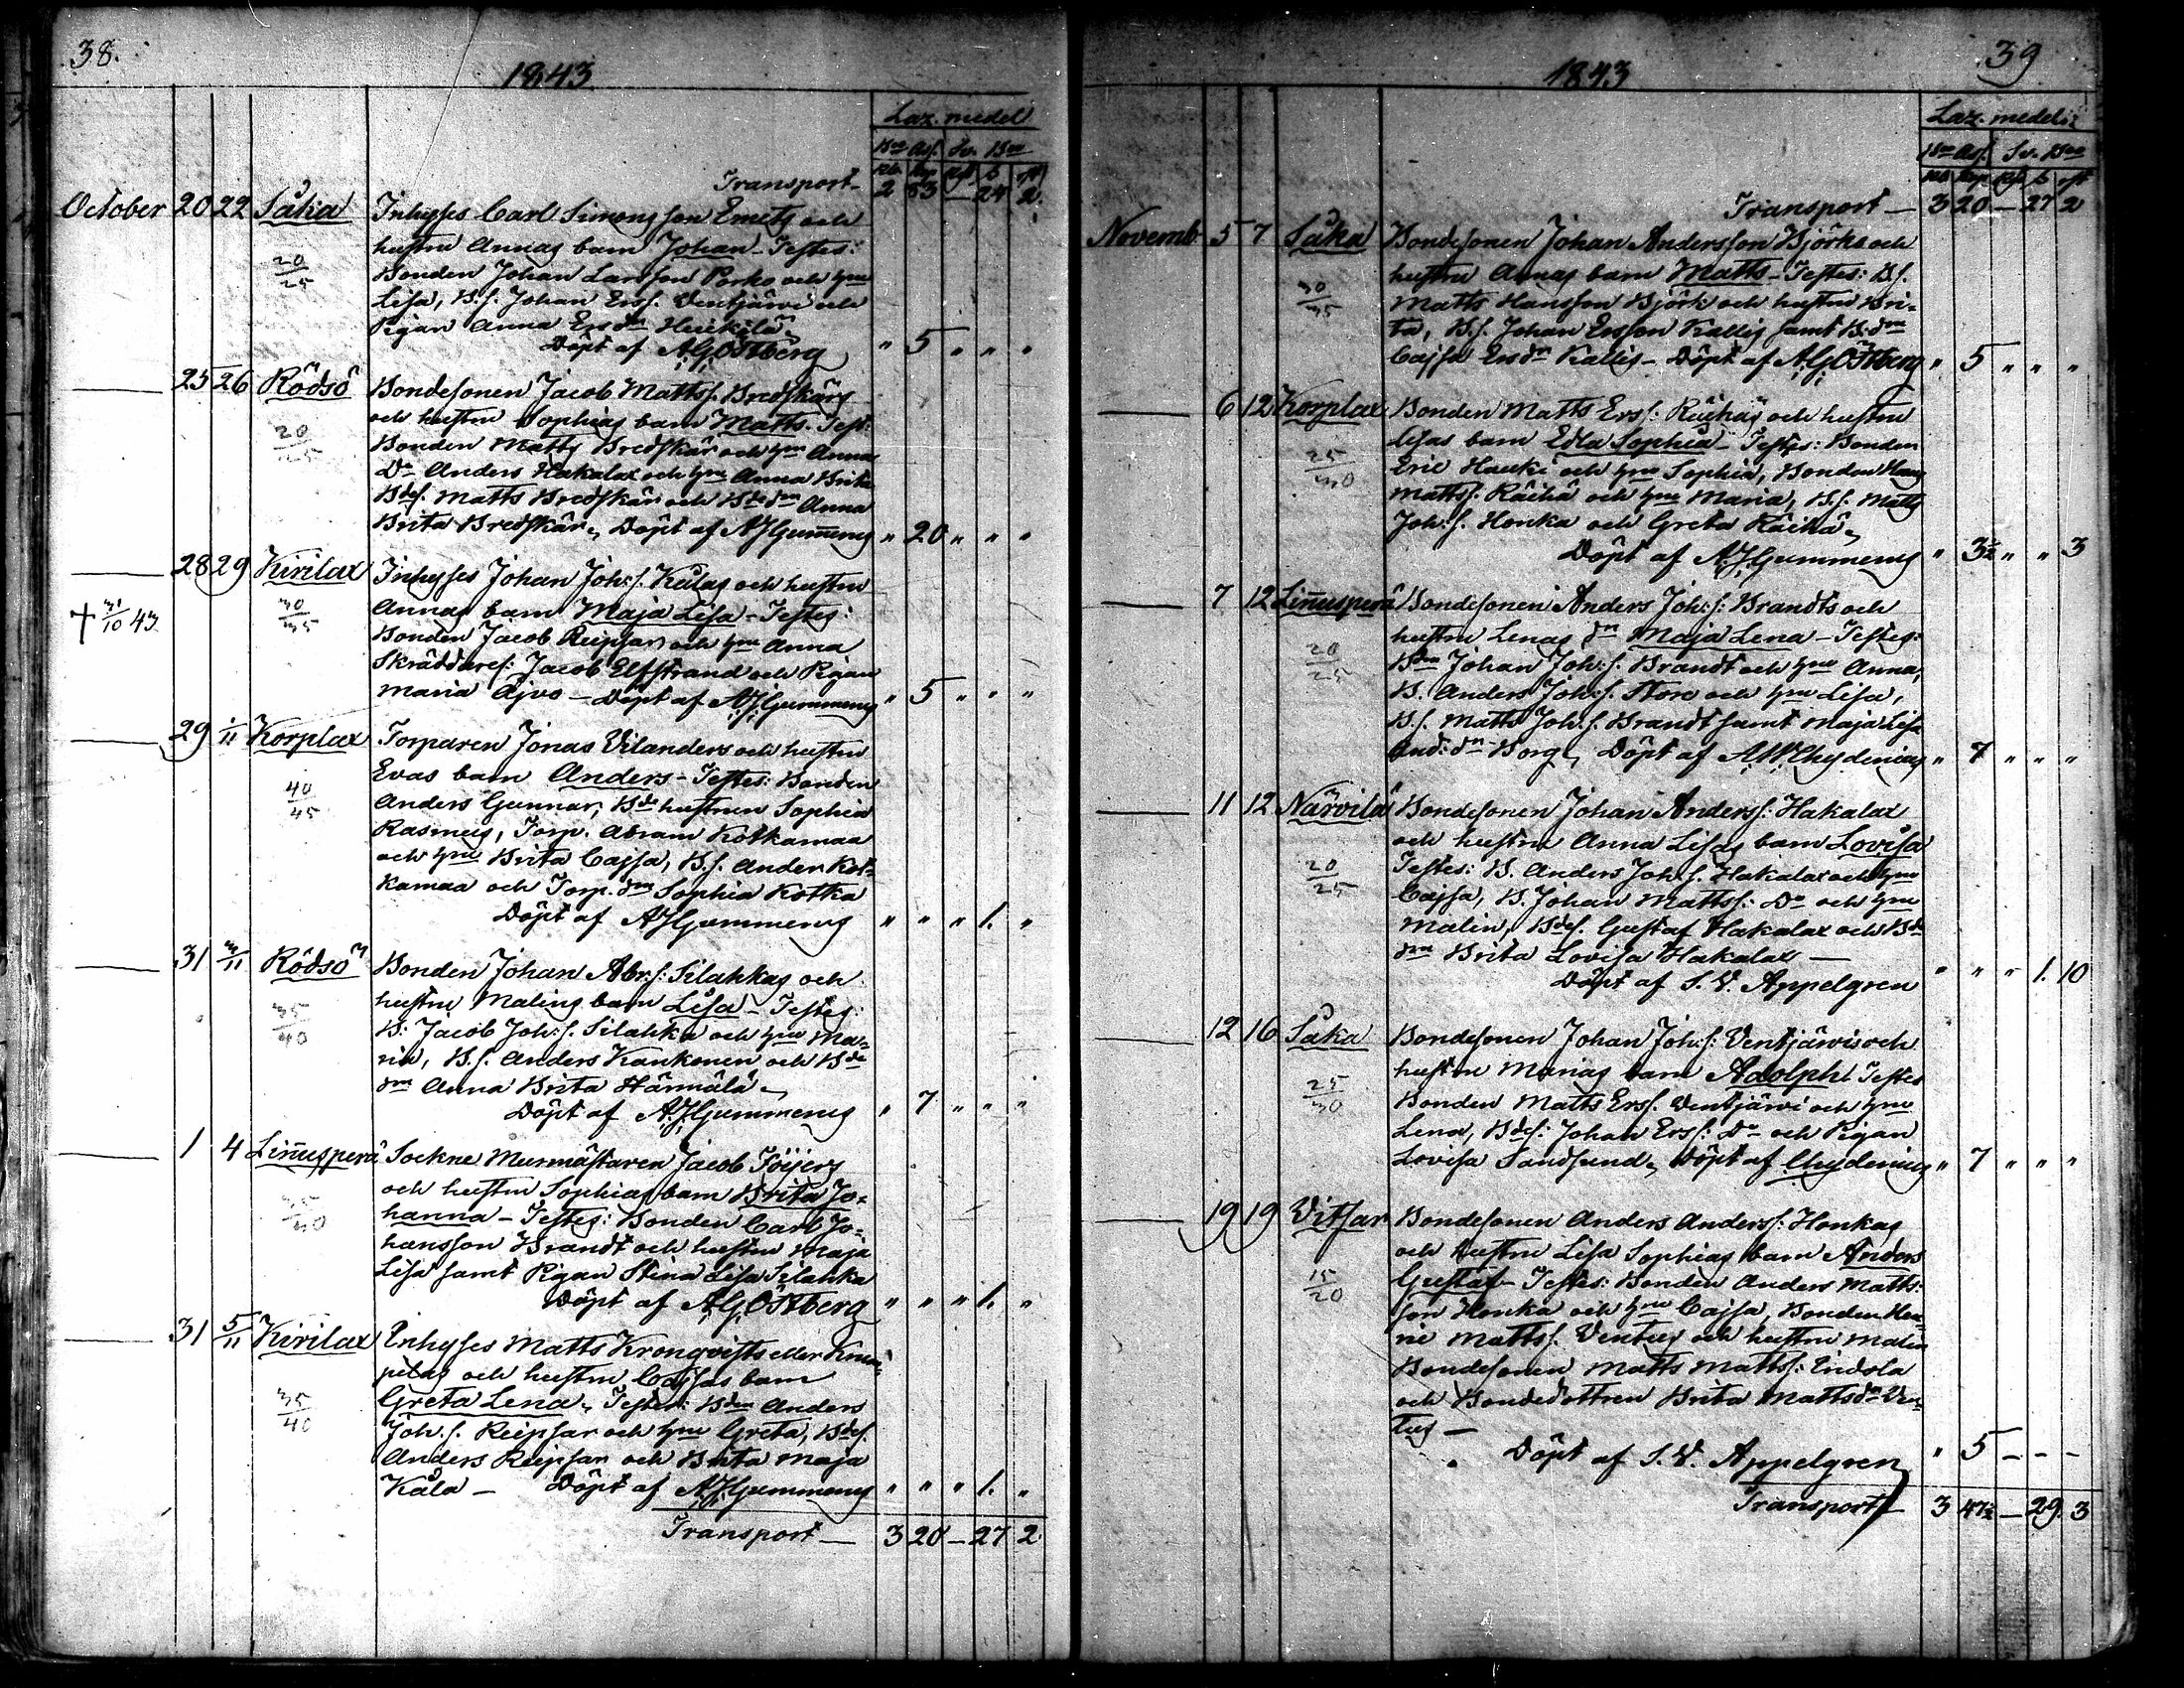 38.
1843
Laz. medel
B:co Ass. Sv. B:co
Transport – 2 53 – 24 2.
October 20 22 Såka Inhyses Carl Simonsson Emets och
hustru Annas barn Johan – Testes:
20/25 Bonden Johan Larsson Porko och h:ru
Lisa, B.s. Johan Erss. Ventjärvi och
Pigan Anna Ersd:r Heikilä
Döpt af A.G. Östberg " 5 " " "
25 26 Rödsö Bondesonen Jacob Mattss. Bredskärs
och hustru Sophias barn Matts. Test:
20/25 Bonden Matts Bredskär och h:ru Anna
D:o Anders Hakalax och h:ru Anna Brita
Bdes. Matts Bredskär och Bded:r Anna
Brita Bredskär, Döpt af A J Gummerus " 20 " " "
28 29 Kirilax Inhyses Johan Joh:s. Kålas och hustru
† 31/10 43 30/35 Annas barn Maja Lisa – Testes:
Bonden Jacob Reipsar och h:ru Anna
Skräddares: Jacob Elfstrand och Pigan
Maria Ajvo – Döpt af A.J. Gummerus " 5 " " "
29 1/11 Korplax Torparen Jonas Vilanders och hustru
Evas barn Anders – Testes: Bonden
40/45 Anders Gunnar, Bde hustrun Sophia
Rasmus, Torp. Abram Kotkamaa
och h:ru Brita Cajsa, B.s. Ander Kot-
kamaa och Torp. d:r Sophia Kotka
Döpt af A J Gummerus " " " 1. "
31 3/11 Rödsö Bonden Johan Abr.s: Silahkas och
hustru Malins barn Lisa – Testes:
35/40 B: Jacob Joh:s. Silahka och h:ru Ma-
ria, B.s. Anders Kankonen och Bde
d:r Anna Brita Härmälä –
Döpt af A.J. Gummerus " 7 " " "
1 4 Linnusperä Sockne Murmästaren Jacob Föijers
och hustru Sophias barn Brita Jo-
35/40 hanna – Testes: Bonden Carl Jo-
hansson Brandt och hustru Maja
Lisa samt Pigan Stina Lisa Silahka
Döpt af A.G. Östberg " " " 1. "
31 5/11 Kirilax Inhyses Matts Kronqvists eller
och hustru Cajsas barn
35/40 Greta Lena, Testes: Bden Anders
Joh.s. Reipsar och h:ru Greta, Bdes.
Anders Reipsar och Brita Maja
Kåla – Döpt af A.J. Gummerus " " " 1. "
Transport – 3 20 – 27 2.
39
1843
Laz. medel:
B:co Ass. Sv. B:co
Transport – 3 20 – 27 2
Novemb. 5 7 Såka Bondesonen Johan Andersson Björks och
hustru Annas barn Matts – Testes: B.s.
30/35 Matts Hansson Björk och hustru Bri-
ta, B.s. Johan Ersson Kallis samt B:d:r
Cajsa Ersd:r Kallis – Döpt af A.G. Östberg " 5 " " "
6 12 Korplax Bonden Matts Ers.: Räihäs och hustru
Lisas barn Edla Sophia – Testes: Bonden
25/30 Eric Hauki och h:ru Sophia, Bonden Hans
Mattss. Räihä och h:ru Maria, B.s: Matts
Joh:s. Honka och Greta Räihä,
Döpt af A.J. Gummerus " 3½ " " 3
7 12 Linnusperä Bondesonen Anders Joh.s: Brandts och
hustru Lenas d:r Maja Lena – Testes:
20/25 Bden Johan Joh:s. Brandt och h:ru Anna,
B. Anders Joh:s. Store och h:ru Lisa,
B.s. Matts Joh.s. Brandt samt Maja Lisa
And: d:r Borg, Döpt af A.W. Chydenius " 7 " " "
11 12 Närvilä Bondesonen Johan Anderss: Hakalax
och hustru Anna Lisas barn Lovisa
20/25 Testes: B. Anders Joh.s. Hakalax och h:ru
Cajsa, B. Johan Mattss: D:o och h:ru
Malin, Bdes. Gustaf Hakalax och Bde
d:r Brita Lovisa Hakalax –
Döpt af S. V. Appelgren " " " 1. 10
12 16 Såka Bondesonen Johan Joh:s: Ventjärvis och
hustru Marias barn Adolph. Testes
25/30 Bonden Matts Erss. Ventjärvi och h:ru
Lena, Bdes: Johan Erss: D:o och Pigan
Lovisa Sandsund, Döpt af Chydenius " 7 " " "
19 19 Vitsar Bondesonen Anders Anderss: Honkas
och hustru Lisa Sophias barn Anders
15/20 Gustaf – Testes: Bonden Anders Matts-
son Honka och h:ru Cajsa, Bonden Hen-
ric Mattss. Ventus och hustru Malin
Bondesonen Matts Mattss: Indola
och Bondedottren Brita Mattsd:r Ven-
tus –
Döpt af S. V. Appelgren " 5 – – –
Transport 3 47½ – 29. 3